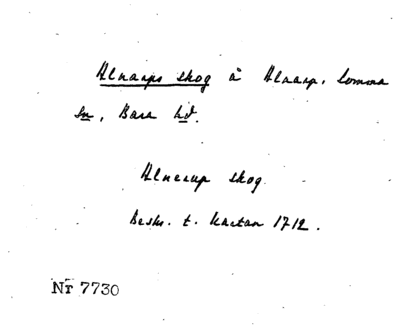 Alnarps skog å Alnarp, Lomma
sn, Bara hd.
Alnerup skog.
Beskr. t. kartan 1712.
Nr 7730